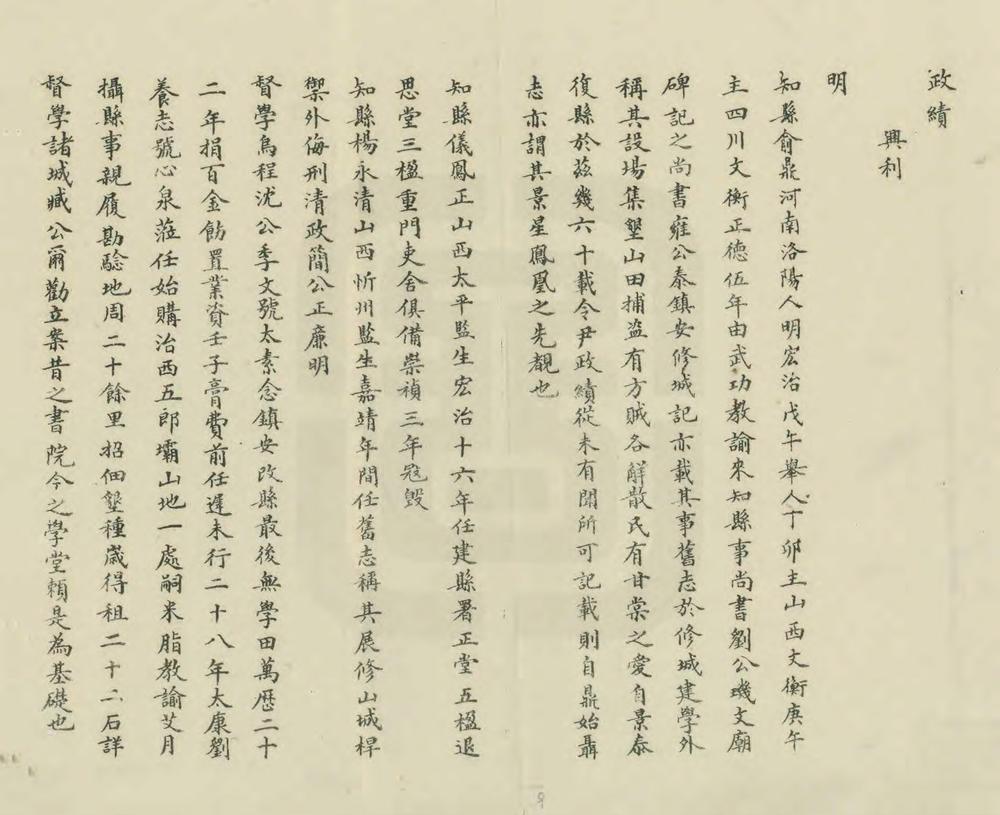 政績
興利
明
知縣俞鼎河南洛陽人明宏治戊午舉人丁卯主山西文衡庚午
主四川文衡正德伍年由武功教諭來知縣事尚書劉公璣文廟
碑記之尚書雍公泰鎮安修城記亦載其事舊志於修城建學外
稱其設場集墾山田捕盜有方賊各解散民有甘棠之愛自景泰
復縣於茲幾六十載令尹政績從未有聞所可記載則自鼎始聶
志亦謂其景星鳳凰之先覩也
知縣儀鳳正山西太平監生宏治十六年任建縣署正堂五楹退
思堂三楹重門吏舍俱備崇禎三年寇毀
知縣楊永清山西忻州監生嘉靖年間任舊志稱其展修山城桿
禦外侮刑清政簡公正廉明
督學烏程沈公季文號太素念鎮安改縣最後無學田萬歷二十
二年捐百金飭置業資壬子膏費前任遲未行二十八年太康劉
養志號心泉蒞任始購治西五郎壩山地一處嗣米脂教諭艾月
攝縣事親履勘驗地周二十餘里招佃墾種歲得租二十二石詳
督學諸城臧公爾勸立案昔之書院今之學堂賴是為基礎也
9